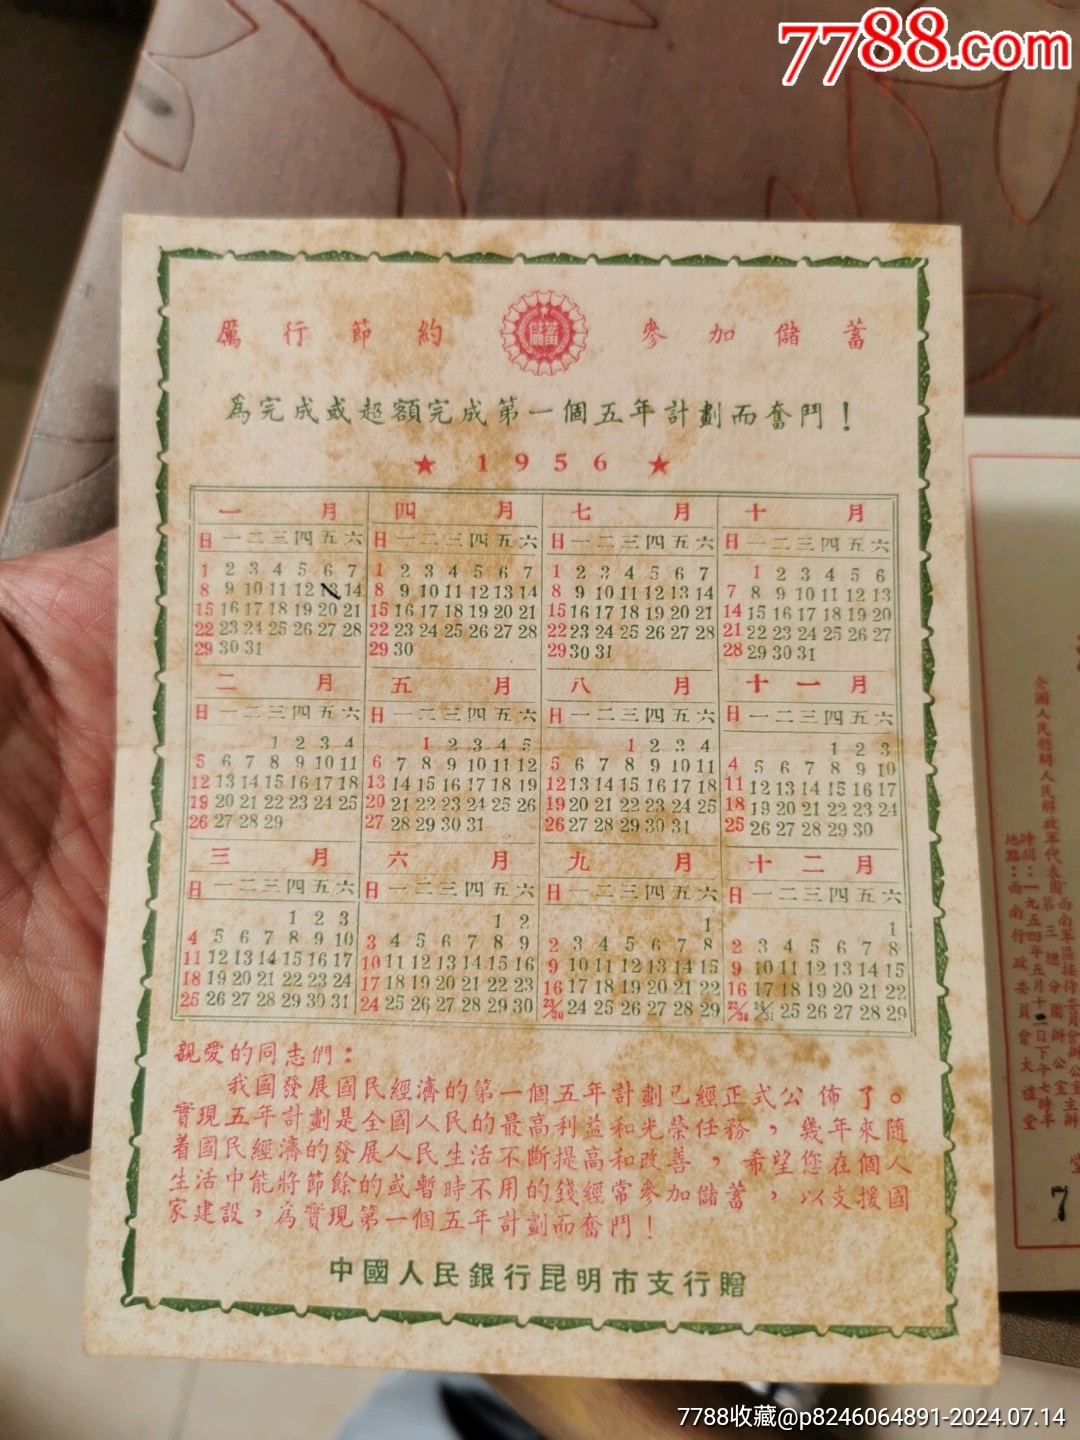 7788.com
厲行節約 儲蓄 參加儲蓄
為完成或超額完成第一個五年計劃而奮鬥！
★ 1956 ★
一月 四月 七月 十月
日一二三四五六 日一二三四五六 日一二三四五六 日一二三四五六
1 2 3 4 5 6 7 1 2 3 4 5 6 7 1 2 3 4 5 6 7 1 2 3 4 5 6
8 9 10 11 12 13 14 8 9 10 11 12 13 14 8 9 10 11 12 13 14 7 8 9 10 11 12 13
15 16 17 18 19 20 21 15 16 17 18 19 20 21 15 16 17 18 19 20 21 14 15 16 17 18 19 20
22 23 24 25 26 27 28 22 23 24 25 26 27 28 22 23 24 25 26 27 28 21 22 23 24 25 26 27
29 30 31 29 30 29 30 31 28 29 30 31
二月 五月 八月 十一月
日一二三四五六 日一二三四五六 日一二三四五六 日一二三四五六
1 2 3 4 1 2 3 4 5 1 2 3 4 1 2 3
5 6 7 8 9 10 11 6 7 8 9 10 11 12 5 6 7 8 9 10 11 4 5 6 7 8 9 10
12 13 14 15 16 17 18 13 14 15 16 17 18 19 12 13 14 15 16 17 18 11 12 13 14 15 16 17
19 20 21 22 23 24 25 20 21 22 23 24 25 26 19 20 21 22 23 24 25 18 19 20 21 22 23 24
26 27 28 29 27 28 29 30 31 26 27 28 29 30 31 25 26 27 28 29 30
三月 六月 九月 十二月
日一二三四五六 日一二三四五六 日一二三四五六 日一二三四五六
1 2 3 1 2 1 1
4 5 6 7 8 9 10 3 4 5 6 7 8 9 2 3 4 5 6 7 8 2 3 4 5 6 7 8
11 12 13 14 15 16 17 10 11 12 13 14 15 16 9 10 11 12 13 14 15 9 10 11 12 13 14 15
18 19 20 21 22 23 24 17 18 19 20 21 22 23 16 17 18 19 20 21 22 16 17 18 19 20 21 22
25 26 27 28 29 30 31 24 25 26 27 28 29 30 23/30 24 25 26 27 28 29 23/30 24/31 25 26 27 28 29
親愛的同志們：
我國發展國民經濟的第一個五年計劃已經正式公佈了。
實現五年計劃是全國人民的最高利益和光榮任務，幾年來隨
着國民經濟的發展人民生活不斷提高和改善，希望您在個人
生活中能將節餘的或暫時不用的錢經常參加儲蓄，以支援國
家建設，為實現第一個五年計劃而奮鬥！
中國人民銀行昆明市支行贈
全國人民慰問人民解放軍代表團第三總分團辦公室
西南軍區接待委員會辦公室主辦
時間：一九五四年五月十二日下午七時半
地點：西南行政委員會大禮堂
堂
7
7788收藏@p8246064891-2024.07.14